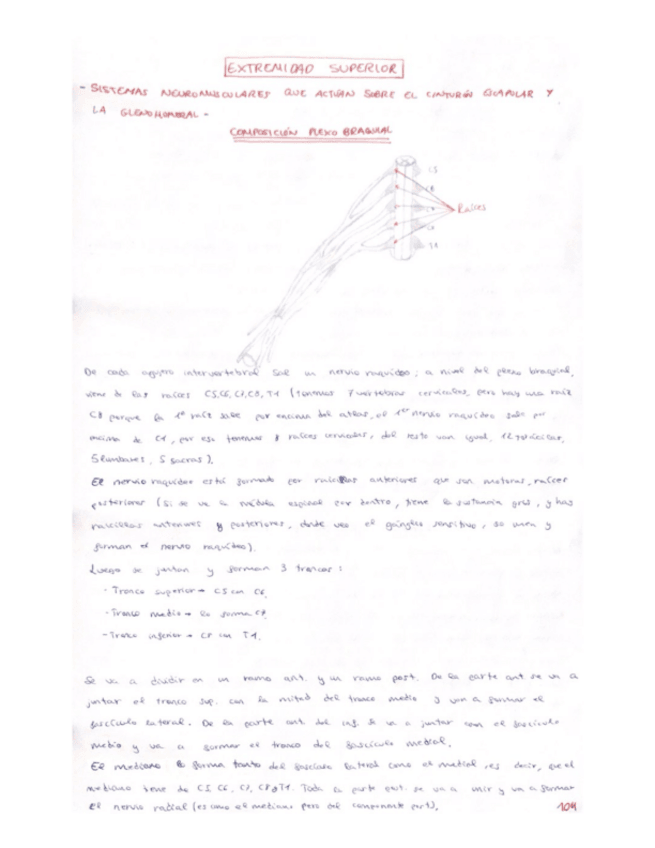 EXTREMIDAD SUPERIOR
- SISTEMAS NEUROMUSCULARES QUE ACTUAN SOBRE EL CINTURÓN ESCAPULAR Y
LA GLENOHUMERAL -
COMPOSICIÓN PLEXO BRAQUIAL
C5
C6
C7
C8
T1
Raíces
De cada agujero intervertebral sale un nervio raquídeo; a nivel del plexo braquial,
viene de las raíces C5, C6, C7, C8, T1 (tenemos 7 vertebras cervicales, pero hay una raíz
C8 porque la 1ª raíz sale por encima del atlas, el 1er nervio raquídeo sale por
encima de C1, por eso tenemos 8 raíces cervicales, del resto van igual, 12 torácicas,
5 lumbares, 5 sacras).
El nervio raquídeo está formado por raicillas anteriores que son motoras, raíces
posteriores (si se ve la médula espinal por dentro, tiene la sustancia gris, y hay
raicillas anteriores y posteriores, donde veo el ganglio sensitivo, se unen y
forman el nervio raquídeo).
Luego se juntan y forman 3 troncos:
- Tronco superior → C5 con C6.
- Tronco medio → lo forma C7.
- Tronco inferior → C8 con T1.
Se va a dividir en un ramo ant. y un ramo post. De la parte ant. se va a
juntar el tronco sup. con la mitad del tronco medio y van a formar el
fascículo lateral. De la parte ant. del inf. se va a juntar con el fascículo
medio y va a formar el tronco del fascículo medial.
El mediano lo forma tanto del fascículo lateral como el medial, es decir, que el
mediano tiene de C5, C6, C7, C8 y T1. Toda la parte post. se va a unir y va a formar
el nervio radial (es como el mediano pero del componente post).
104